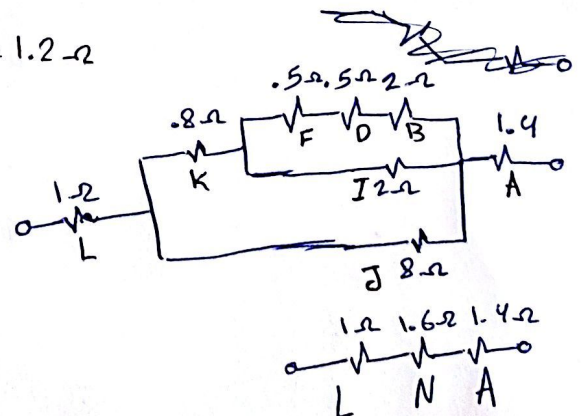 1.2 Ω
.5Ω .5Ω 2Ω
.8Ω
F D B
1.4
K
I 2Ω
A
1Ω
L
J 8Ω
1Ω 1.6Ω 1.4Ω
L N A